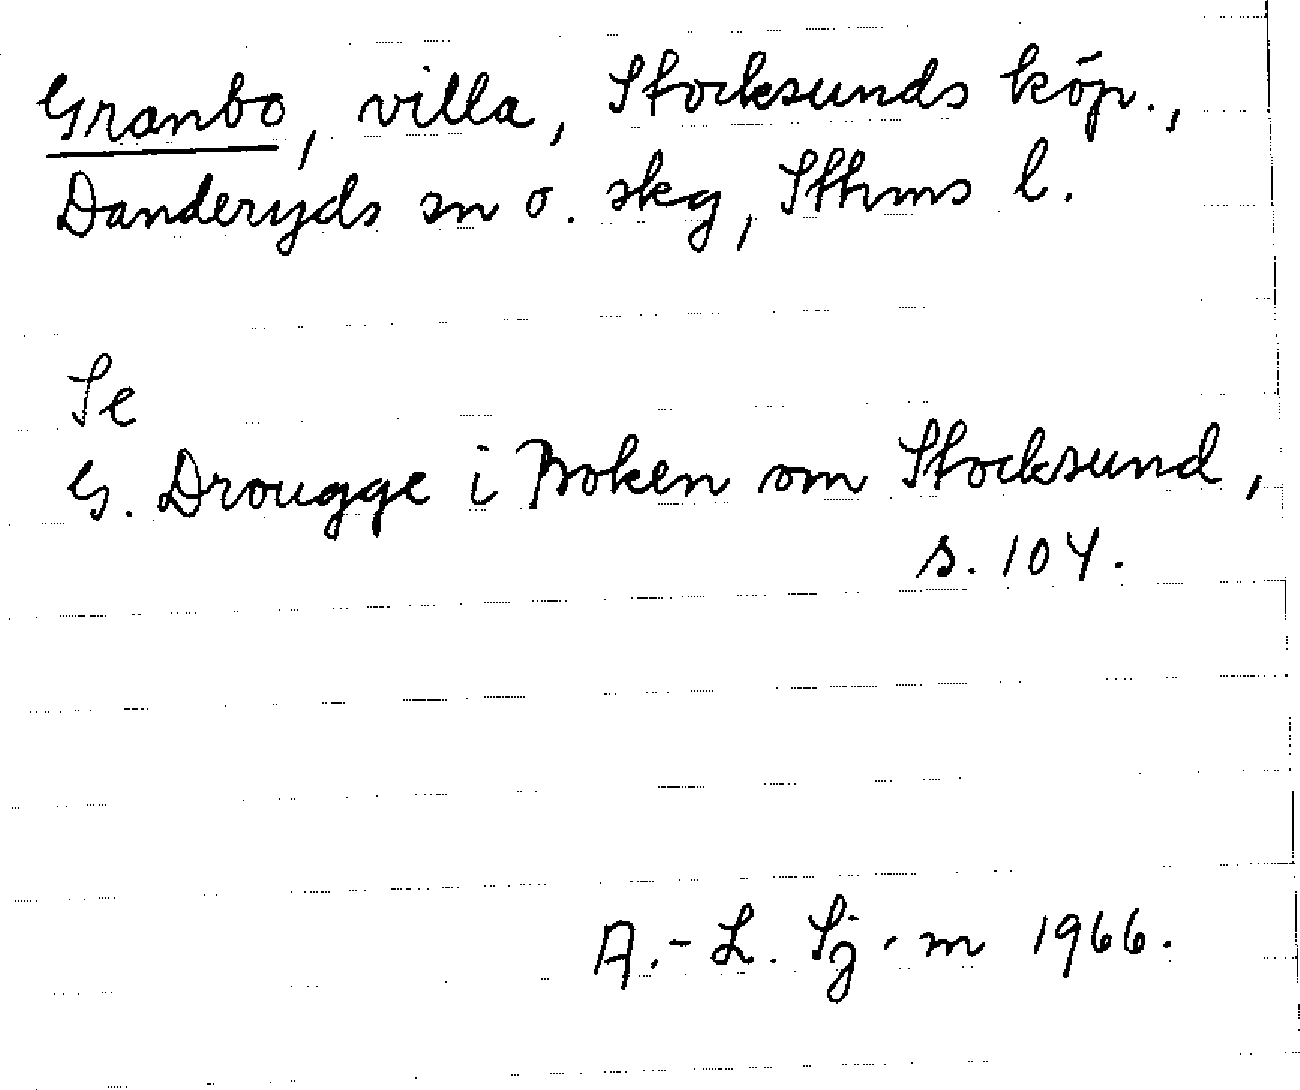 Granbo, villa, Stocksunds köp.,
Danderyds sn o. skg, Sthms l.
Se
G. Drougge i Boken om Stocksund,
s. 104.
A.-L. Sj.m 1966.